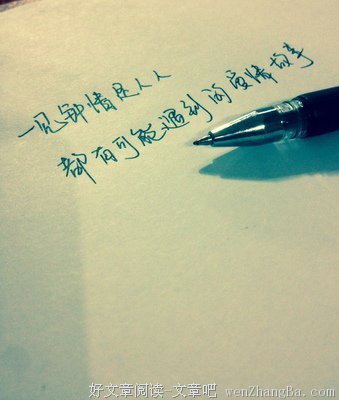 一见钟情是人人
都有可能遇到的爱情故事
好文章阅读-文章吧 wenZhangBa.com